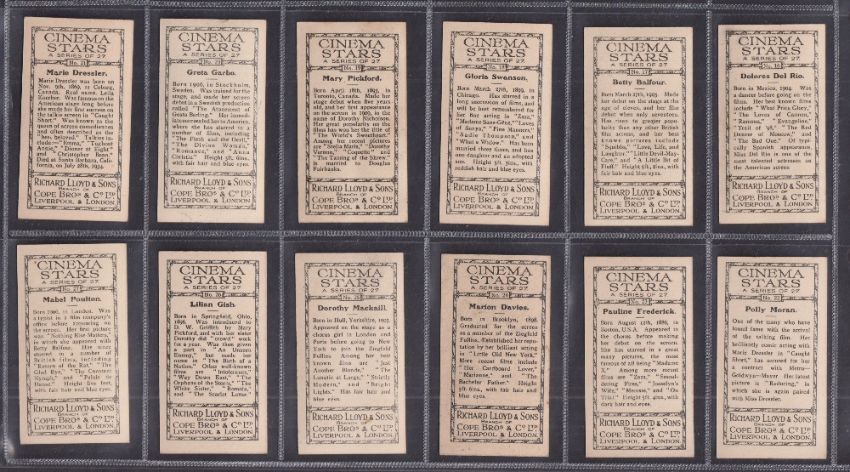 CINEMA
STARS
A SERIES OF 27
No. 21
Marie Dressler.
Marie Dressler was born on
Nov. 9th, 1869, in Coburg,
Canada. Real name, Leila
Koerber. Was famous on the
American stage long before
she made her first success on
the talkie screen in "Caught
Short." Was known as the
queen of screen comediennes
and often described as the
"best beloved." Talking in-
clude "Emma," "Tugboat
Annie," "Dinner at Eight"
and "Christopher Bean."
Died at Santa Barbara, Cali-
fornia, on July 28th, 1934.
RICHARD LLOYD & SONS
BRANCH OF
COPE BROS & CO LTD
LIVERPOOL & LONDON.
CINEMA
STARS
A SERIES OF 27
Greta Garbo.
Born 1906, in Stockholm,
Sweden. Was trained for the
stage, and made her screen
debut in a Swedish production
called "The Atonement of
Gosta Berling." Her
followed her to America,
where she has starred in a
number of films, including
"The Flesh and the Devil,"
"The Divine Woman,"
"Romance," and "Anna
Christie." Height 5ft. 6ins.,
with fair hair and blue eyes.
RICHARD LLOYD & SONS
BRANCH OF
COPE BROS & CO LTD
LIVERPOOL & LONDON
CINEMA
STARS
A SERIES OF 27
No. 19
Mary Pickford.
Born April 18th, 1893, in
Toronto, Canada. Made stage
debut when five years
old, and her first appearance
on the screen in 1909, in the
name of Dorothy Nicholson.
Her great popularity on
the films has won her the title of
"The World's Sweetheart."
Among her recent pictures
are "Stella Maris," "Dorothy
Vernon," "Coquette" and
"The Taming of the Shrew."
Is married to Douglas
Fairbanks.
RICHARD LLOYD & SONS
BRANCH OF
COPE BROS & CO LTD
LIVERPOOL & LONDON
CINEMA
STARS
A SERIES OF 27
No. 18
Gloria Swanson.
Born March 27th, 1899, in
Chicago. Has starred in a
long succession of films, and
will be best remembered for
her fine acting in "Zaza,"
"Madame Sans-Gene," "Loves
of Sunya," "Fine Manners,"
"Sadie Thompson," and
"What a Widow." Has been
married three times, and has
one daughter and an adopted
son. Height 5ft. 3ins., with
reddish hair and blue eyes.
RICHARD LLOYD & SONS
BRANCH OF
COPE BROS & CO LTD
LIVERPOOL & LONDON.
CINEMA
STARS
A SERIES OF 27
No. 17
Betty Balfour.
Born March 27th, 1903. Made
her debut on the stage at the
age of eleven, and her film
debut when only seventeen.
Has risen to greater popu-
larity than any other British
film actress, and her best
known pictures include
"Squibs," "Love, Life, and
Laughter," "Little Devil-May-
Care," and "A Little Bit of
Fluff." Height 5ft. 3ins., with
fair hair and blue eyes.
RICHARD LLOYD & SONS
BRANCH OF
COPE BROS & CO LTD
LIVERPOOL & LONDON
CINEMA
STARS
A SERIES OF 27
No. 16
Dolores Del Rio.
Born in Mexico, 1904. Was a
dancer before going on the
films. Her best known films
include "What Price Glory,"
"The Loves of Carmen,"
"Ramona," "Evangeline,"
"Trail of '98," "The Red
Dancer of Moscow," and
"The Bad One." Of typi-
cally Spanish appearance,
Miss Del Rio is one of the
most talented actresses on
the American screen.
RICHARD LLOYD & SONS
BRANCH OF
COPE BROS & CO LTD
LIVERPOOL & LONDON
CINEMA
STARS
A SERIES OF 27
No. 27
Mabel Poulton.
Born in London. Was
a typist in a film company's
office before appearing on
the screen. Her first picture
was "Nothing Else Matters,"
in which she appeared with
Betty Balfour. She has since
starred in a number of
British films, including the
"Return of the Rat," "The
Glad Eye," "The Constant
Nymph," and "Palais de
Danse." Height five feet,
with fair hair and blue eyes.
RICHARD LLOYD & SONS
BRANCH OF
COPE BROS & CO LTD
LIVERPOOL & LONDON.
CINEMA
STARS
A SERIES OF 27
No. 26
Lilian Gish.
Born in Springfield, Ohio,
1896. Was introduced to
D. W. Griffith by Mary
Pickford, and with her sister
Dorothy did "crowd" work
for a year. Was then given
a part in "An Unseen
Enemy," but made her
name in "The Birth of a
Nation." Other well-known
films are "Intolerance,"
"Way Down East," "The
Orphans of the Storm," "The
White Sister," "Romola,"
and "The Scarlet Letter."
RICHARD LLOYD & SONS
BRANCH OF
COPE BROS & CO LTD
LIVERPOOL & LONDON
CINEMA
STARS
A SERIES OF 27
No. 25
Dorothy Mackaill.
Born in Hull, Yorkshire, 1905.
Appeared on the stage as a
chorus girl in London and
Paris before going to New
York to join the Ziegfeld
Follies. Among her best
known films are "Just
Another Blonde," "The
Lunatic at Large," "Strictly
Modern," and "Bright
Lights." Has fair hair and
blue eyes.
RICHARD LLOYD & SONS
BRANCH OF
COPE BROS & CO LTD
LIVERPOOL & LONDON
CINEMA
STARS
A SERIES OF 27
No. 24
Marion Davies.
Born in Brooklyn, 1898.
Understudied for the screen
as a member of the Ziegfeld
Follies. Established her repu-
tation by her brilliant acting in
"Little Old New York."
More recent films include
"Her Cardboard Lover,"
"Marianne," and "The
Bachelor Father." Height
5ft. 6ins., with fair hair and
blue eyes.
RICHARD LLOYD & SONS
BRANCH OF
COPE BROS & CO LTD
LIVERPOOL & LONDON.
CINEMA
STARS
A SERIES OF 27
No. 23
Pauline Frederick.
Born August 12th, 1886, in
Boston, U.S.A. Appeared in
the chorus before making
her debut on the screen. She
has starred in a great
many pictures, the most
famous of all being "Madame
X." Among more recent
films are "Zaza," "Smoul-
dering Fires," "Josselyn's
Wife," "Mumsie," and "On
Trial." Height 5ft. 4ins., with
dark hair and blue eyes.
RICHARD LLOYD & SONS
BRANCH OF
COPE BROS & CO LTD
LIVERPOOL & LONDON
CINEMA
STARS
A SERIES OF 27
No. 22
Polly Moran.
One of the many who have
found fame with the arrival
of the talking film. Her
brilliantly comic acting with
Marie Dressler in "Caught
Short," has secured for her
a contract with Metro-
Goldwyn-Mayer. Her latest
picture is "Reducing," in
which she is again paired
with Miss Dressler.
RICHARD LLOYD & SONS
BRANCH OF
COPE BROS & CO LTD
LIVERPOOL & LONDON